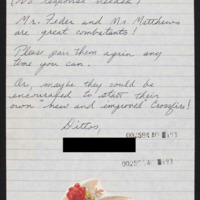 (No response needed!)
Mr. Feder and Ms. Matthews
are great combatants!
Please pair them again any
time you can.
Or, maybe they could be
encouraged to start their
own "new and improved Crossfire!
Dittos,